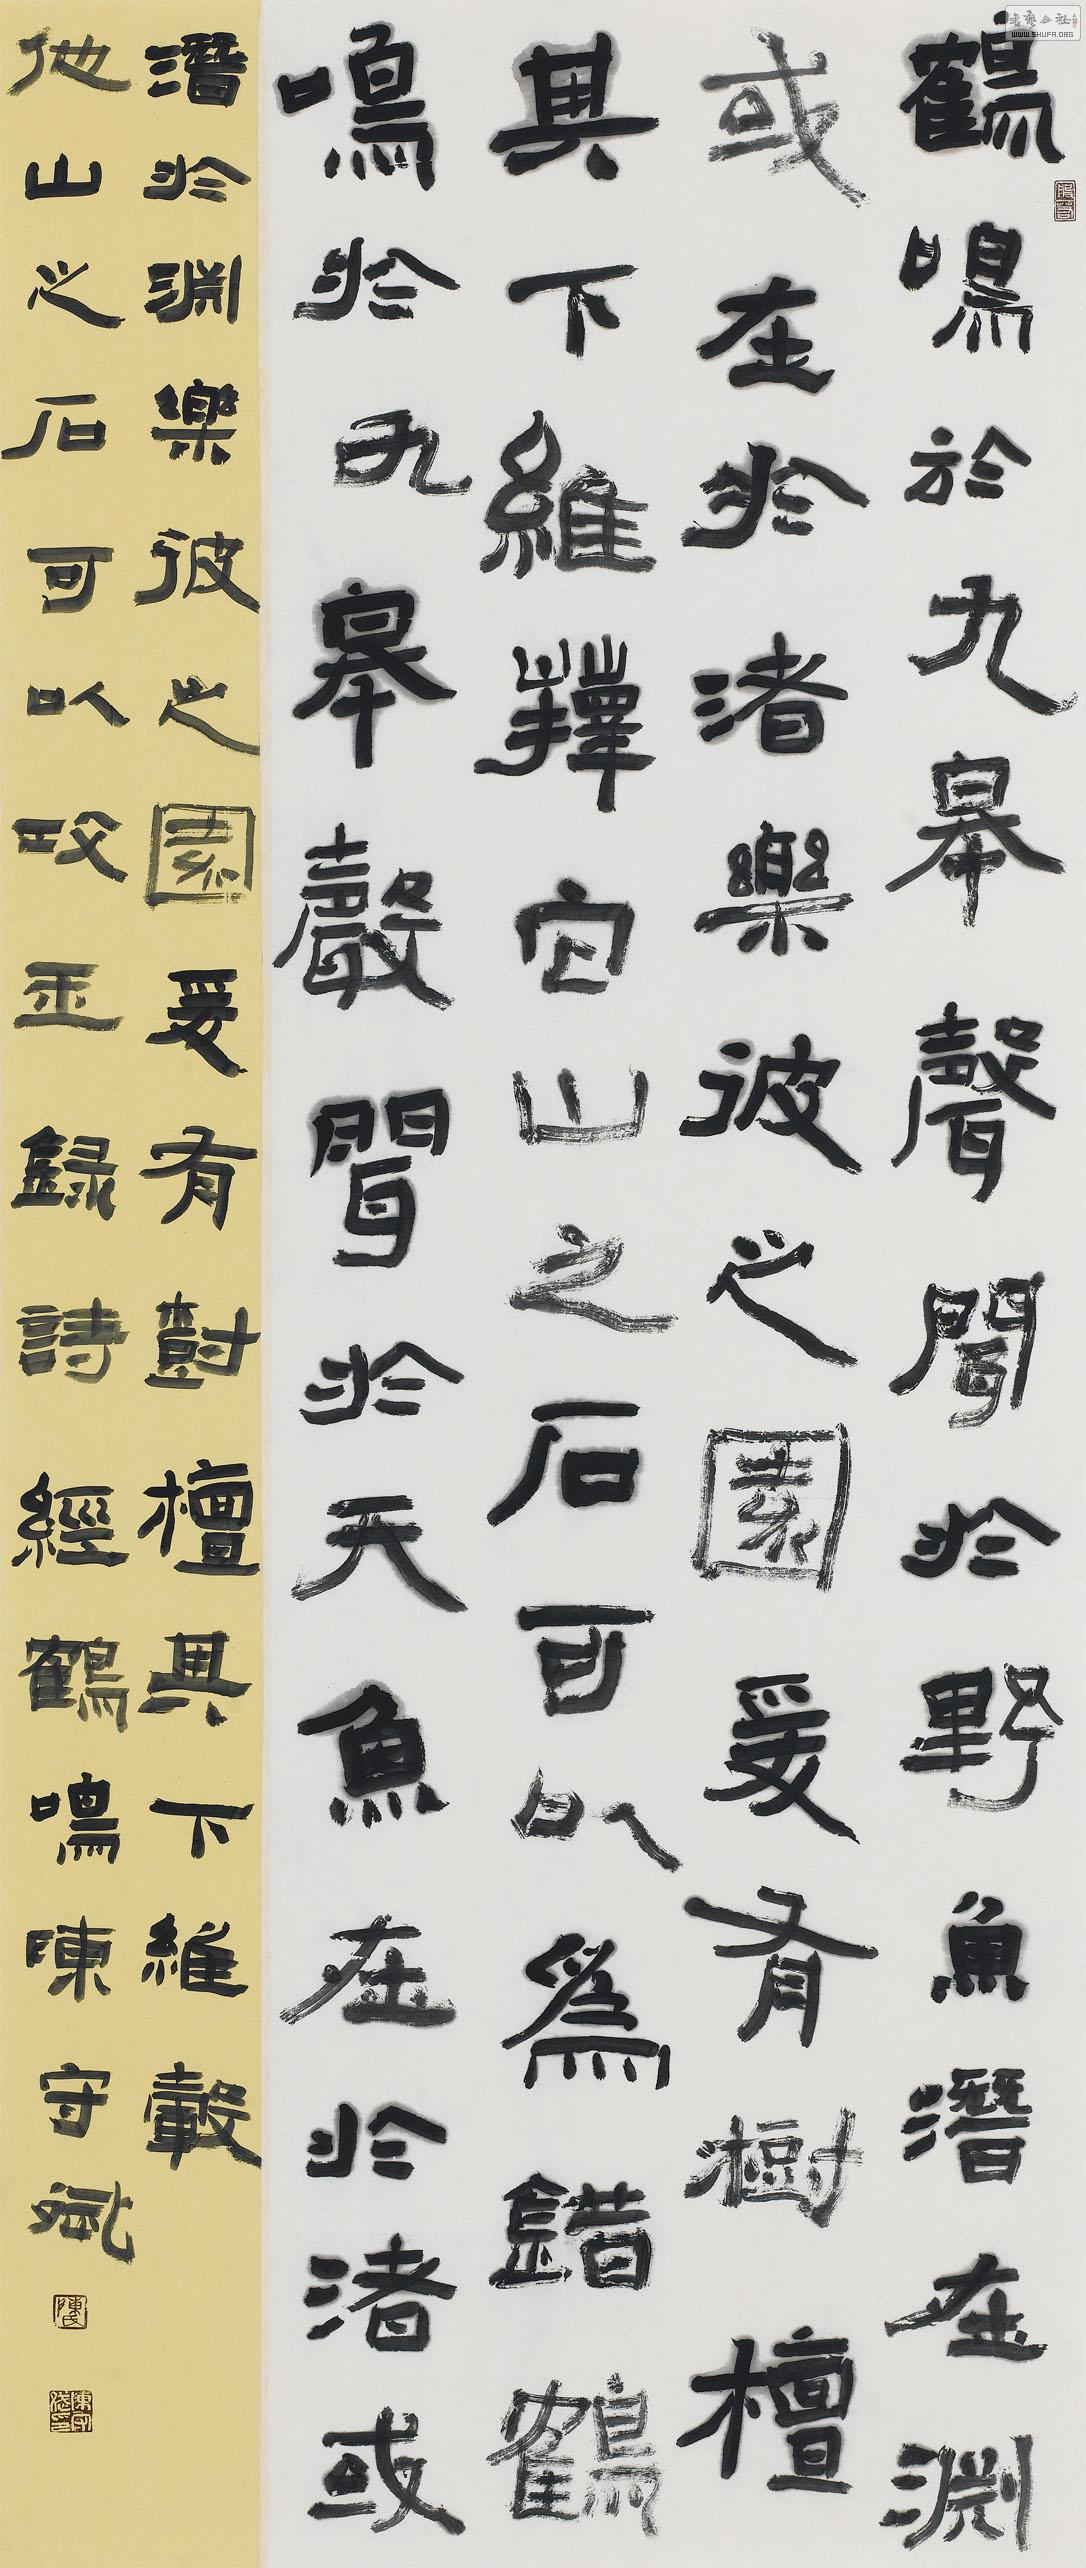 鶴鳴於九皋聲聞於野魚潛在淵
或在於渚樂彼之園爰有樹檀
其下維蘀它山之石可以為錯鶴
鳴於九皋聲聞於天魚在於渚或
潛於淵樂彼之園爰有樹檀其下維榖
他山之石可以攻玉錄詩經鶴鳴陳守斌
WWW.SHUFA.ORG